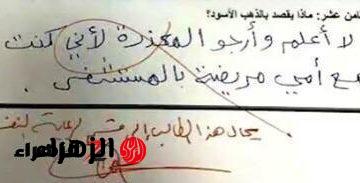 من عشر: ماذا يقصد بالذهب الأسود؟
لا أعلم وأرجو المعذرة لأني كنت
مع أمي مريضة بالمستشفى.
يحال هذا الطالب إلى
الزهراء